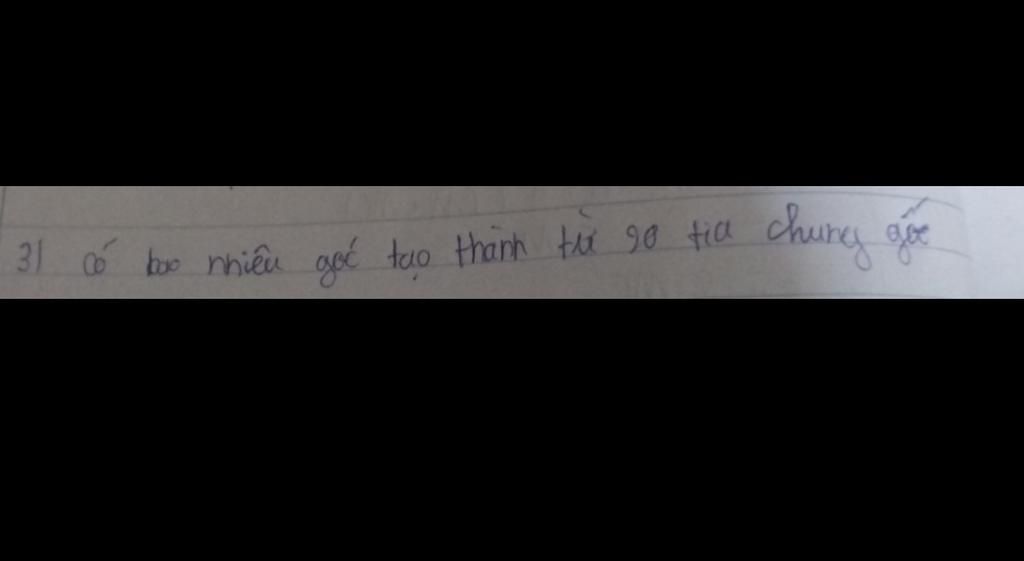 3) có bao nhiêu góc tạo thành từ 90 tia chung gốc